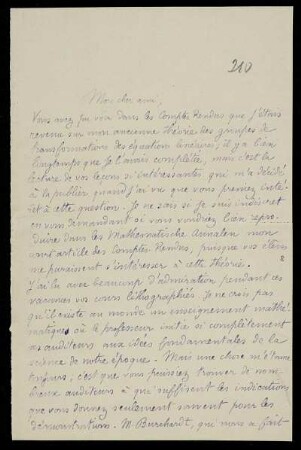 210
Mon cher ami,
Vous avez pu voir dans les Comptes Rendus que j'étais
revenu sur mon ancienne théorie des groupes de
transformations des équations linéaires; il y a bien
longtemps que je l'avais complétée, mais c'est la
lecture de vos leçons si intéressantes qui m'a décidé
à la publier quand j'ai vu que vous preniez intér-
êt à cette question. Je ne sais si je suis indiscret
en vous demandant si vous voudriez bien repro-
duire dans les Mathematische Annalen mon
court article des Comptes Rendus, puisque vos élèves
me paraissent s'intéresser à cette théorie.
J'ai lu avec beaucoup d'admiration pendant ces
vacances vos cours lithographiés. Je ne crois pas
qu'il existe au monde un enseignement mathé-
matique où le professeur initie si complètement
ses auditeurs aux idées fondamentales de la
science de notre époque. Mais une chose m'étonne
toujours; c'est que vous puissiez trouver de nom-
breux auditeurs à qui suffisent les indications
que vous donnez seulement souvent pour les
démonstrations. M. Burkhardt, qui nous a fait